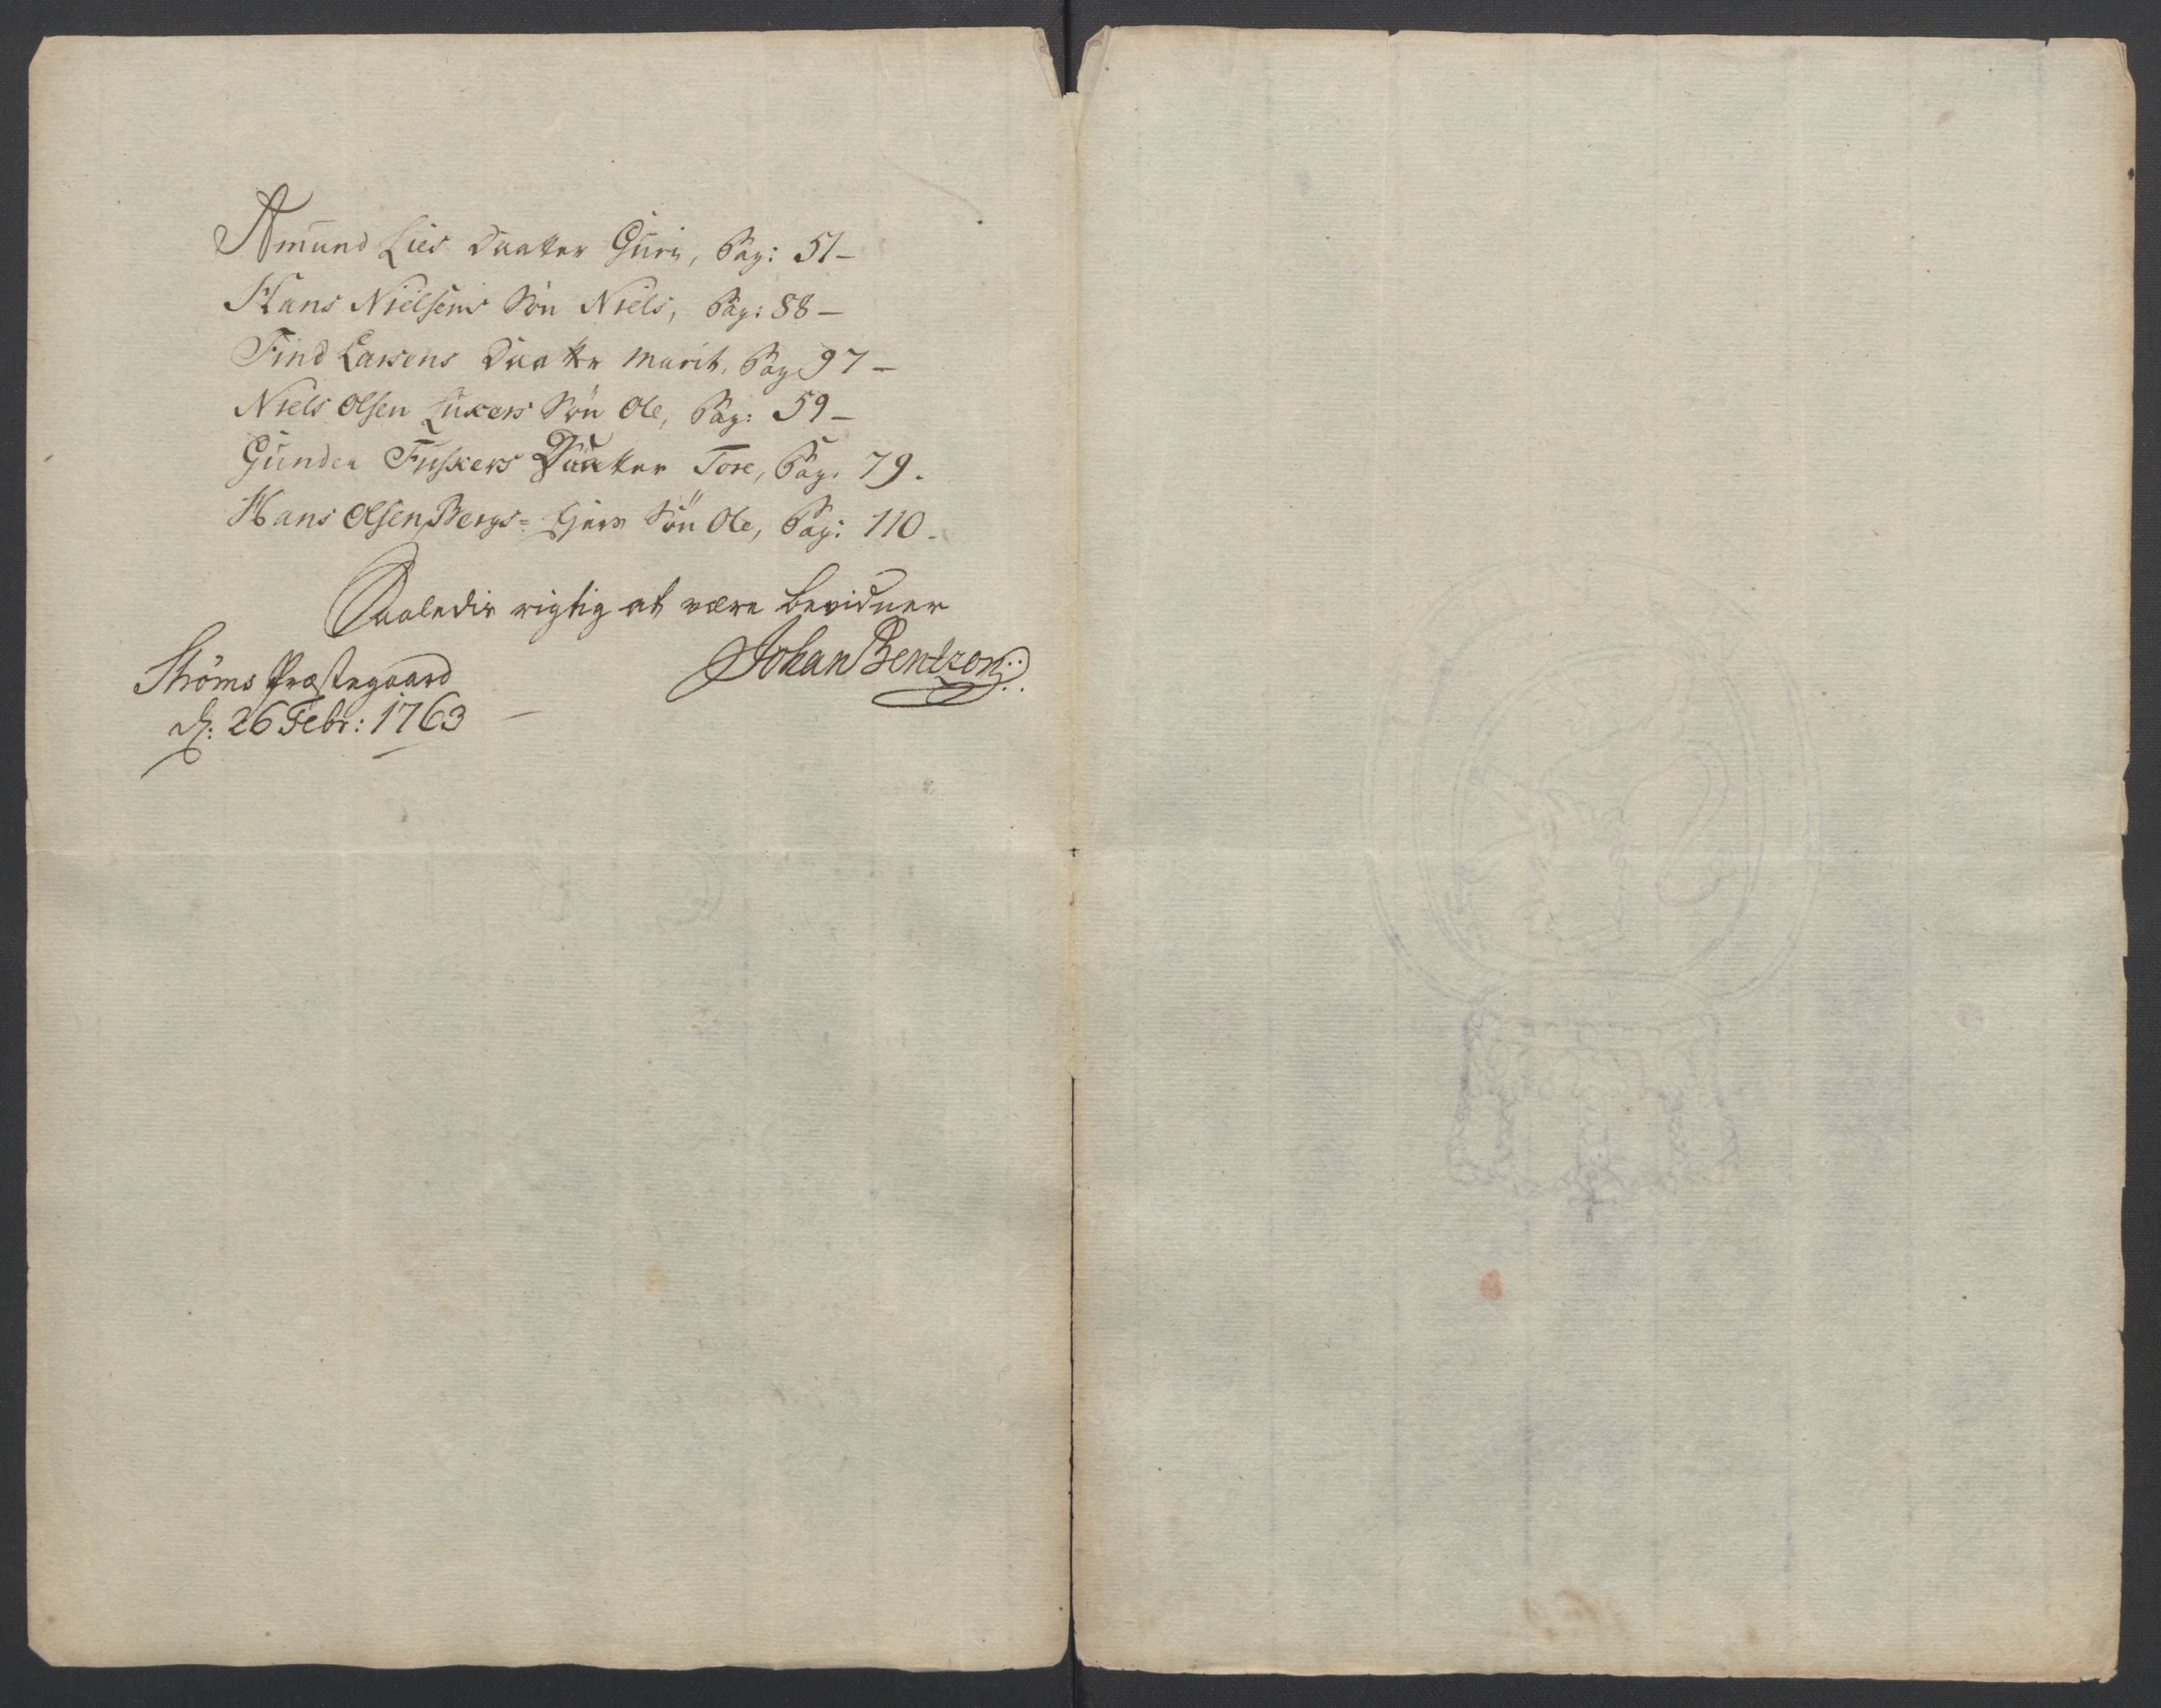 Amund Lies Daatter Guri, Pag: 51 –
Hans Nielsens Søn Niels, Pag: 88 –
Find Larsens Daatter Marit, Pag 97 –
Niels Olsen Søn Ole, Pag: 59 –
Gunder Fiskers Daatter Tore, Pag. 79.
Hans Olsen Bergs= Søn Ole, Pag: 110.
Saaledis rigtig at være bevidner
Strøms Præstegaard
d: 26 Febr: 1763
Johan Bentzon